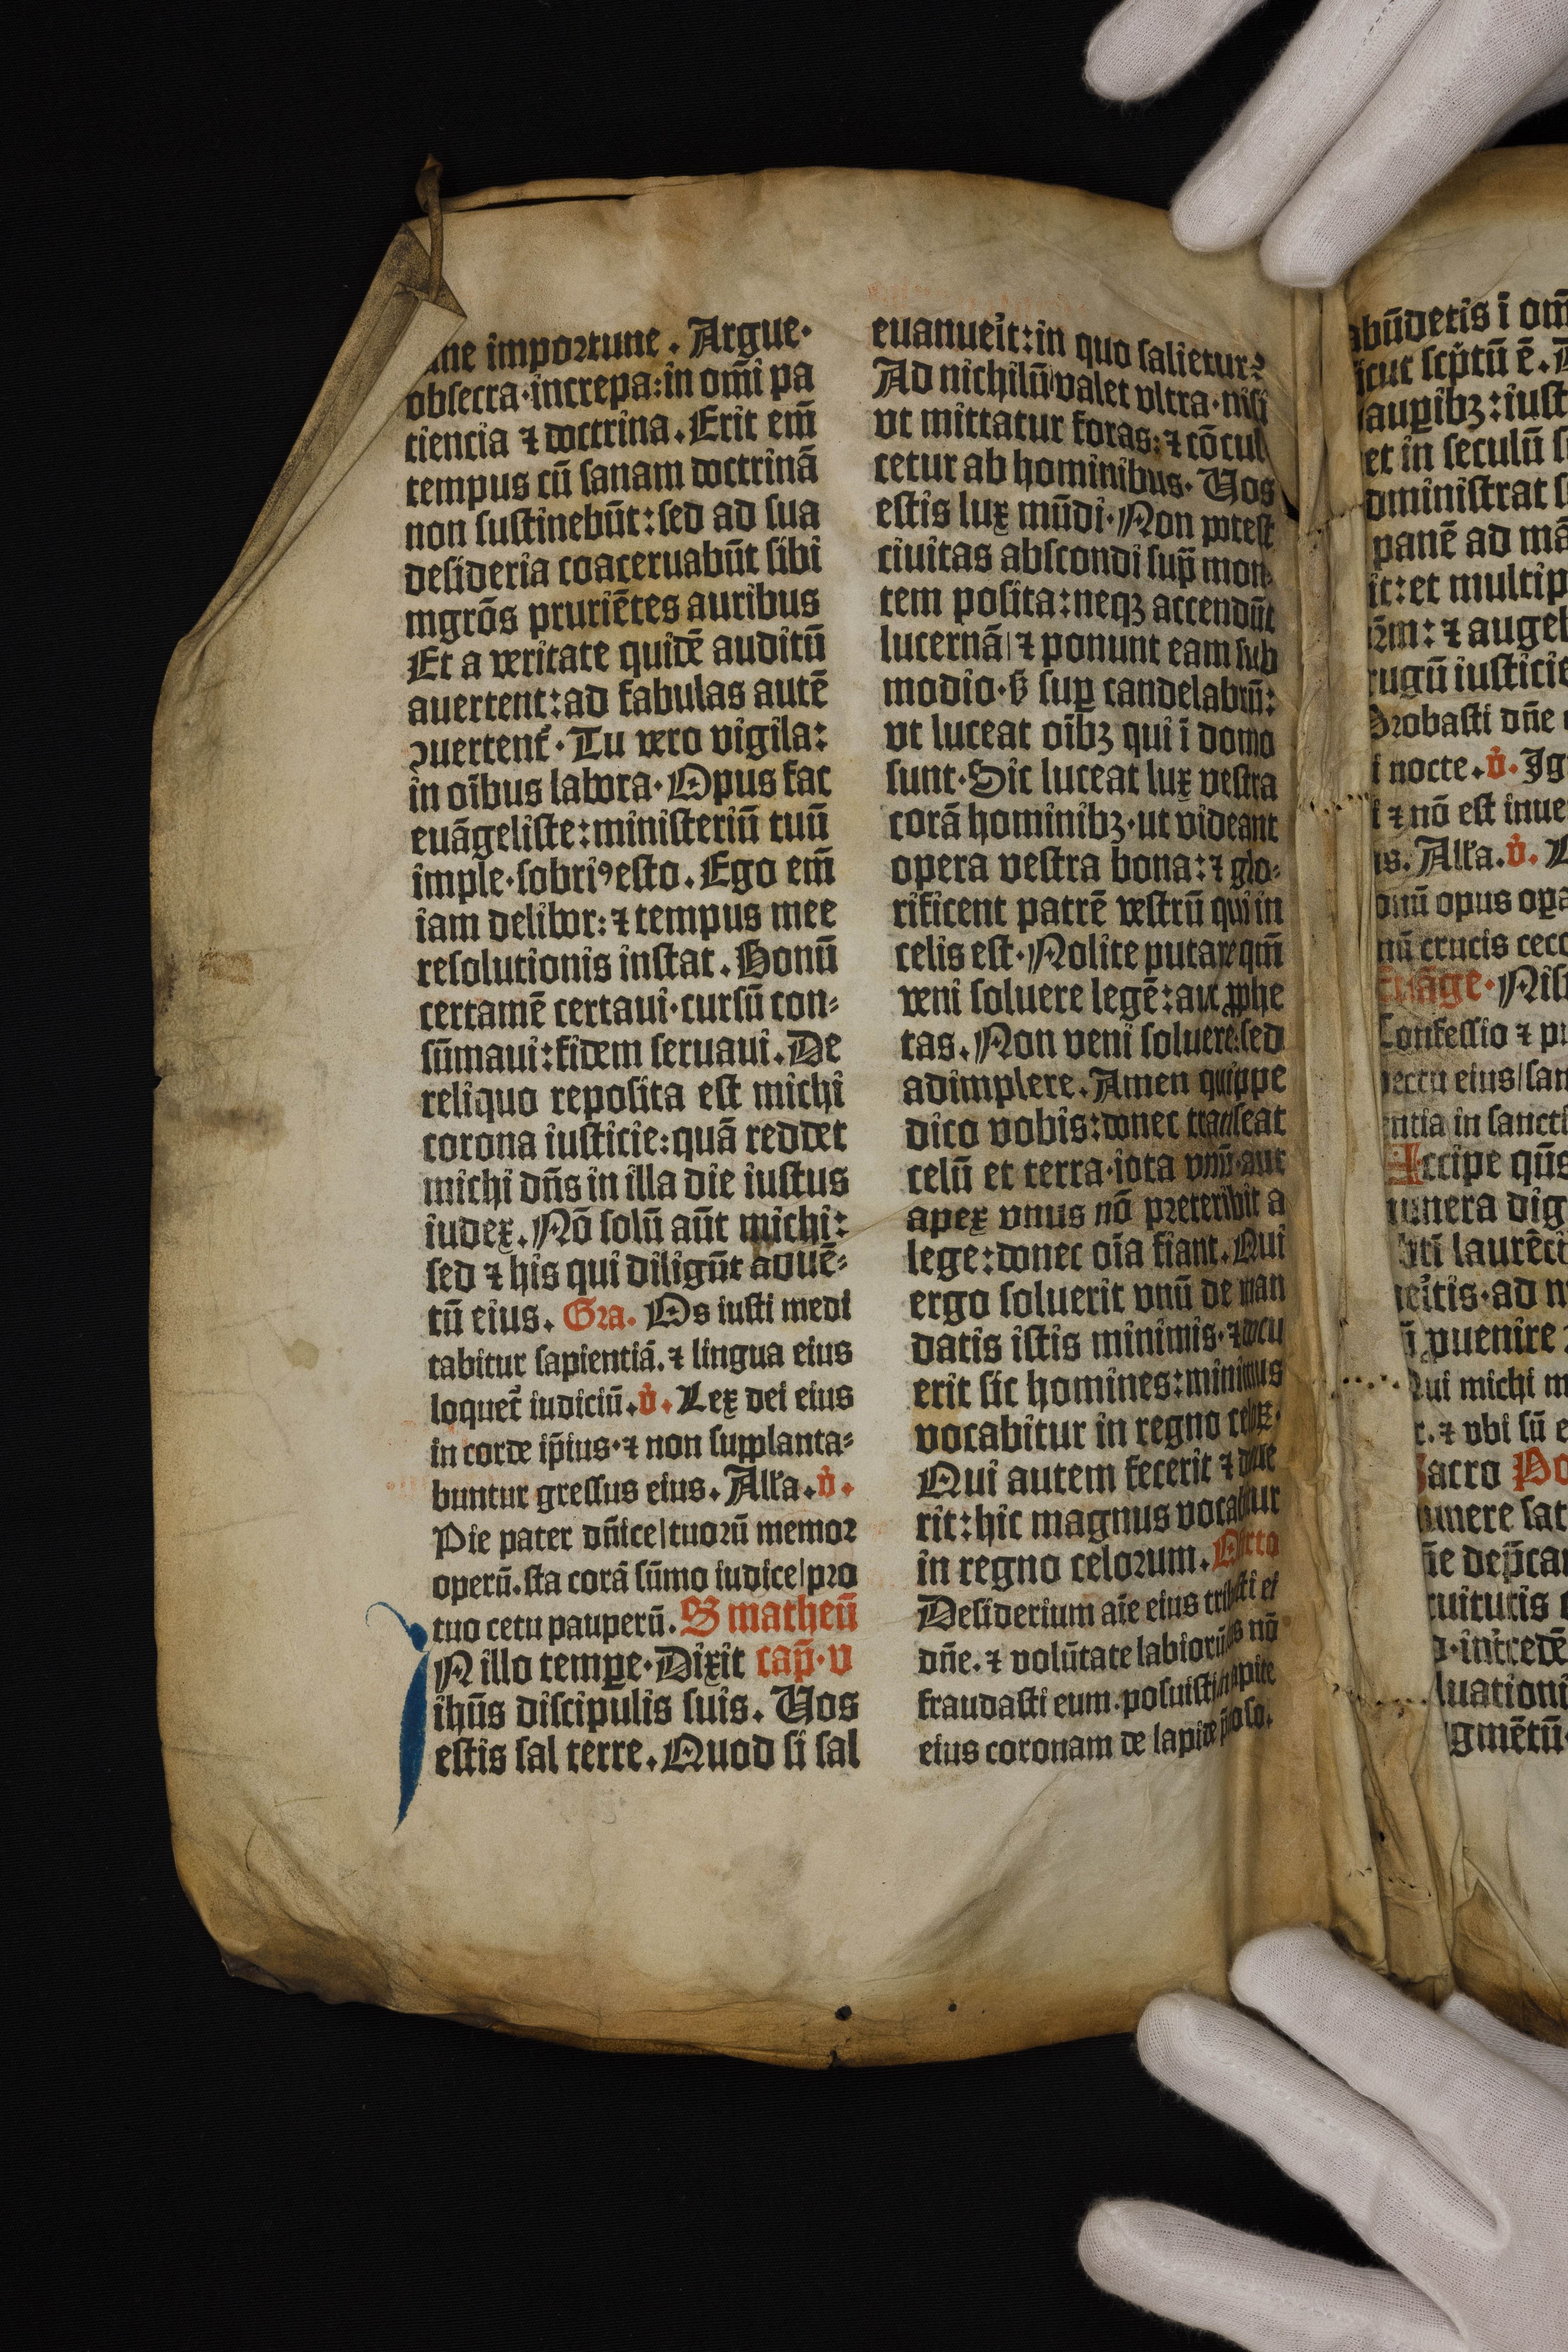 ne importune. Argue·
obsecra·increpa:in om̄i pa
ciencia ⁊ doctrina. Erit em̄
tempus cū sanam doctrinā
non sustinebūt:sed ad sua
desideria coaceruabūt sibi
mgrōs pruriētes auribus
Et a veritate quidē auditū
auertent:ad fabulas autē
ꝯuertent᷑·Tu vero vigila:
in oībus labora·Opus fac
euāgeliste:ministeriū tuū
imple·sobriꝰesto. Ego em̄
iam delibor:⁊ tempus mee
resolutionis instat. Bonū
certamē certaui·cursū con⸗
sūmaui:fidem seruaui. De
reliquo reposita est michi
corona iusticie:quā reddet
michi dn̄s in illa die iustus
iudex. Nō solū aūt michi:
sed ⁊ his qui diligūt aduē⸗
tū eius. Gra. Os iusti medi
tabitur sapientiā.⁊ lingua eius
loquet᷑ iudiciū. v̇. Lex dei eius
in corde ip̄ius·⁊ non supplanta⸗
buntur gressus eius. Alła. v̇.
Pie pater dn̄ice|tuorū memor
operū.sta corā sūmo iudice|pro
tuo cetu pauperū. S matheū
IN illo tempꝑe·Dixit cap̄·v
ihūs discipulis suis. Uos
estis sal terre. Quod si sal
euanueit̉:in quo salietur?
Ad nichilū valet vltra·nisi
vt mittatur foras:⁊ cōcul
cetur ab hominibus. Uos
estis lux mūdi·Non potest
ciuitas abscondi sup̄ mon⸗
tem posita:neqꝫ accendūt
lucernā|⁊ ponunt eam sub
modio·ß suꝑ candelabrū:
vt luceat oībꝫ qui ī domo
sunt·Sic luceat lux vestra
corā hominibꝫ·ut videant
opera vestra bona:⁊ glo⸗
rificent patrē vestrū qui in
celis est·Nolite putare qm̄
veni soluere legē:aut ꝓphe
tas. Non veni soluere:sed
adimplere. Amen quippe
dico vobis:donec transeat
celū et terra·iota vnū·aut
apex vnus nō preteribit a
lege:donec oīa fiant. Qui
ergo soluerit vnū de man
datis istis minimis·⁊ docu
erit sic homines:minimus
vocabitur in regno celoꝝ.
Qui autem fecerit ⁊ docue
rit:hic magnus vocabitur
in regno celorum. Offꝛto
Desiderium aīe eius tribuisti ei
dn̄e.⁊ volūtate labiorū eius nō
fraudasti eum.posuisti in capite
eius coronam de lapide p̄cioso.
abūdetis ī om̄
icut sc̉ptū ē.
auꝑibꝫ:iust
et in seculū s
dministrat s
panē ad mā
it:et multip
⁊ augeb
rugū iusticie
Probasti dn̄e
i nocte. v̇. Ig
i ⁊ nō est inue
is. Alła. v̇. L
onū opus oꝑa
nū crucis cec
Euāge. Nisi
Confessio ⁊ pu
pectu eius|san
entia in sancti
Accipe qs̄
unera dig
bt̄i laurēci
eītis·ad n
puenire
Qui michi m
r.⁊ vbi sū e
Sacro Po
unere sat
ne dep̄ca
ruitutis
intercedē
luationi
gmētū